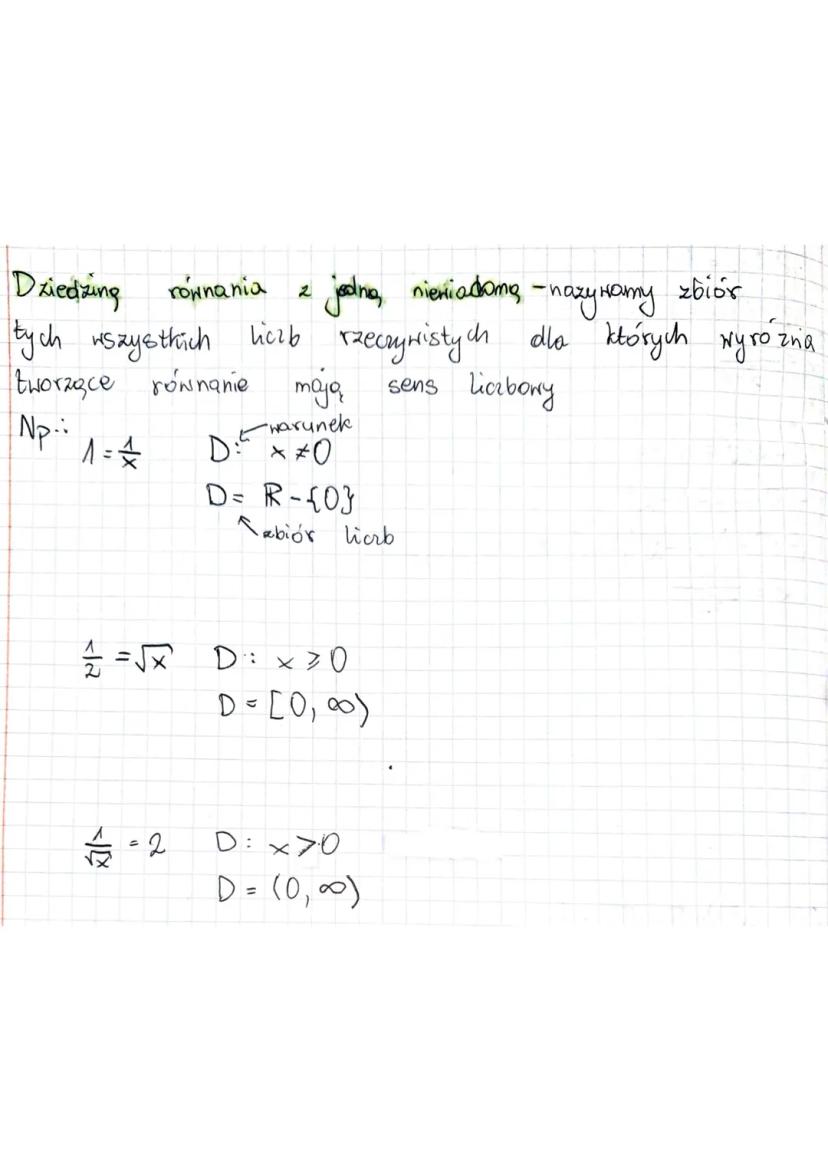 Dziedziną równania z jedną niewiadomą - nazywamy zbiór
tych wszystkich liczb rzeczywistych dla których wyróżnia
tworzące równanie mają sens liczbowy
Np.:
warunek
1 = 1/x D: x ≠ 0
D = R - {0}
zbiór liczb
1/2 = √x D: x ⩾ 0
D = [0, ∞)
1/√x = 2 D: x > 0
D = (0, ∞)